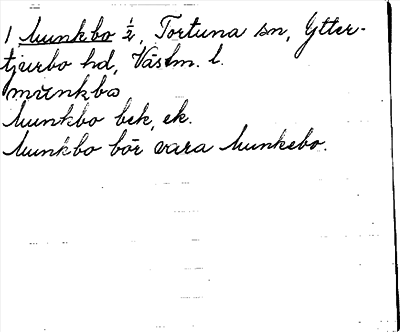 1 Munkbo 1/2, Tortuna sn, Ytter-
tjurbo hd, Västm. l.
munkbo
Munkbo bek, ek.
Munkbo bör vara Munkebo.